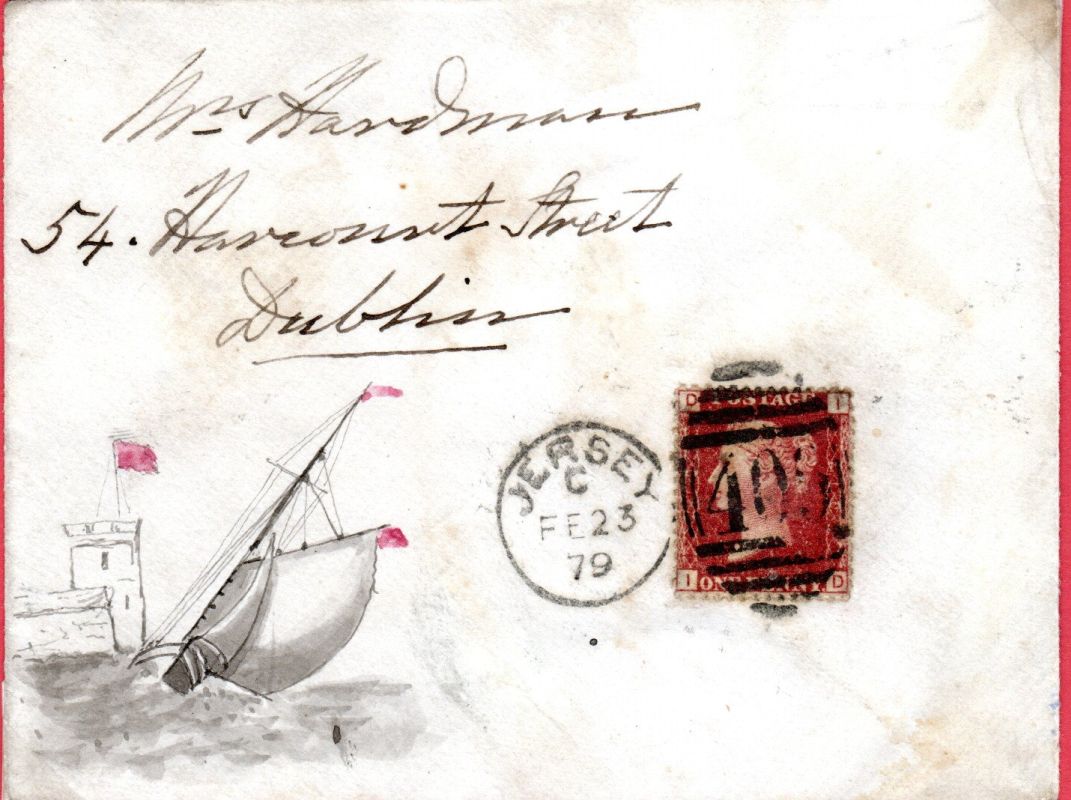 Mrs Hardman
54. Harcourt Street
Dublin
JERSEY
C
FE 23
79
D POSTAGE I
409
I ONE PENNY D